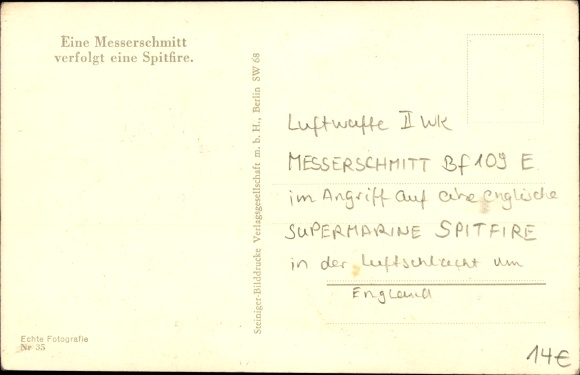 Eine Messerschmitt
verfolgt eine Spitfire.
Echte Fotografie
Nr 35
Steiniger-Bilddrucke Verlagsgesellschaft m. b. H., Berlin SW 68
Luftwaffe II WK
MESSERSCHMITT Bf 109 E
im Angriff auf eine englische
SUPERMARINE SPITFIRE
in der Luftschlacht um
England
14€